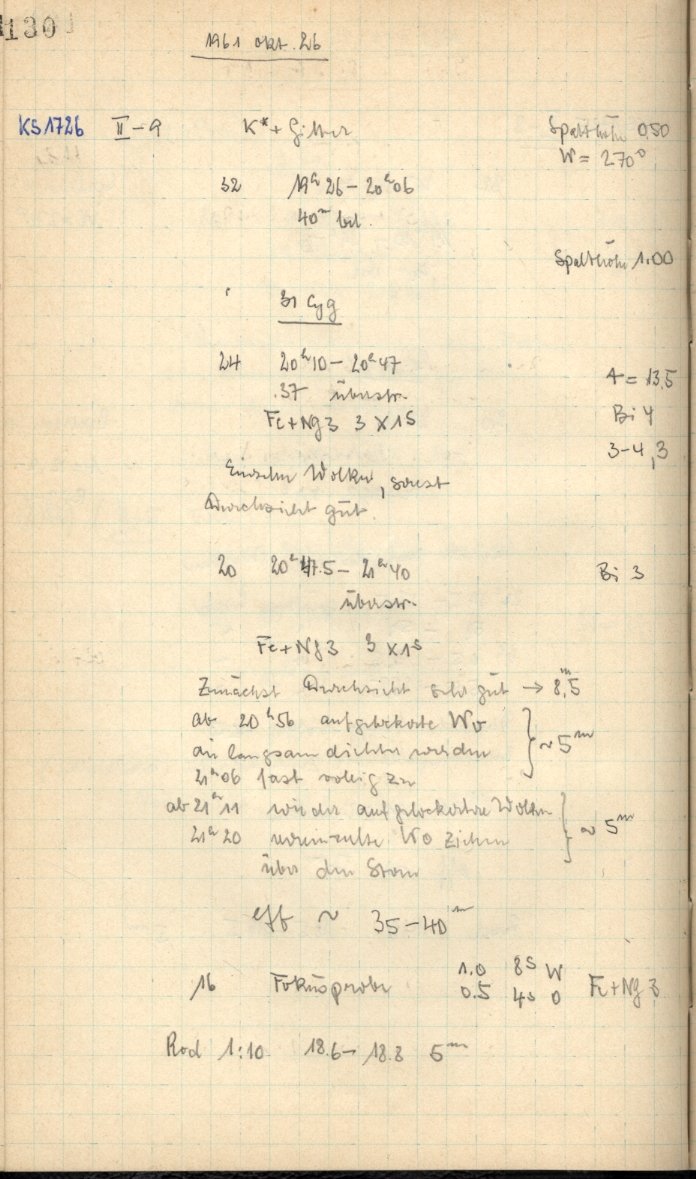 130
1961 Okt. 26
KS1726 II-9 K*+Gitter Spalthöhe 0.50
W = 270°
32 19ʰ26 – 20ʰ06
40ᵐ bel.
Spalthöhe 1.00
31 Cyg
24 20ʰ10 – 20ʰ47
37 überstr.
Fe+Ng3 3 x 1s
= 13,5
Bi 4
3-4,3
Einzelne Wolken, sonst
Durchsicht gut.
20 20ʰ47.5 – 21ʰ40 Bi 3
überstr.
Fe+Ng3 3 x 1s
Zunächst Durchsicht sehr gut → 8ᵐ,5
ab 20ʰ56 aufgelockerte Wo
die langsam dichter werden } ~ 5ᵐ
21ʰ06 fast völlig zu
ab 21ʰ11 wieder aufgelockerte Wolken
21ʰ20 vereinzelte Wo ziehen } ~ 5ᵐ
über den Stern
eff ~ 35-40ᵐ
16 Fokusprobe 1.0 8s W Fe+Ng3
0.5 4s O
Rod 1:10 18.6 – 18.8 5ᵐ